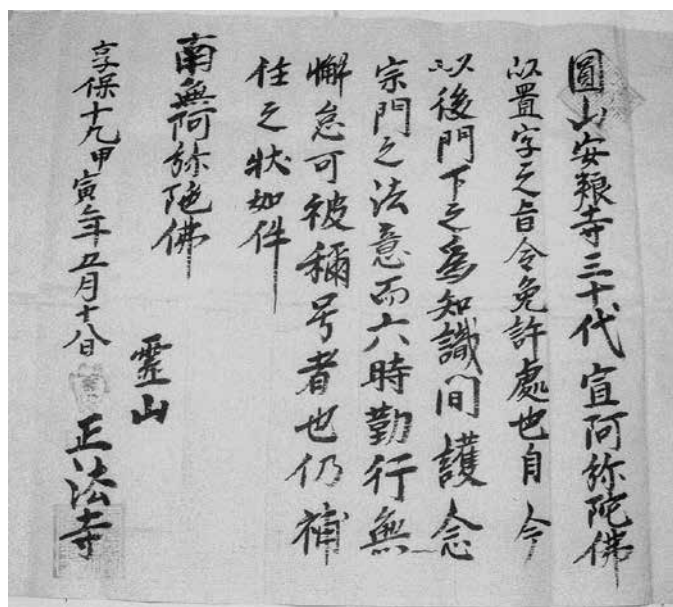 圓山安粮寺三十代宣阿弥陀佛
以置字之旨令免許處也自今
以後門下之爲知識間護念
宗門之法意而六時勤行無
懈怠可被稱号者也仍補
任之状如件
南無阿弥陀佛
霊山
享保十九甲寅年五月十八日
正法寺